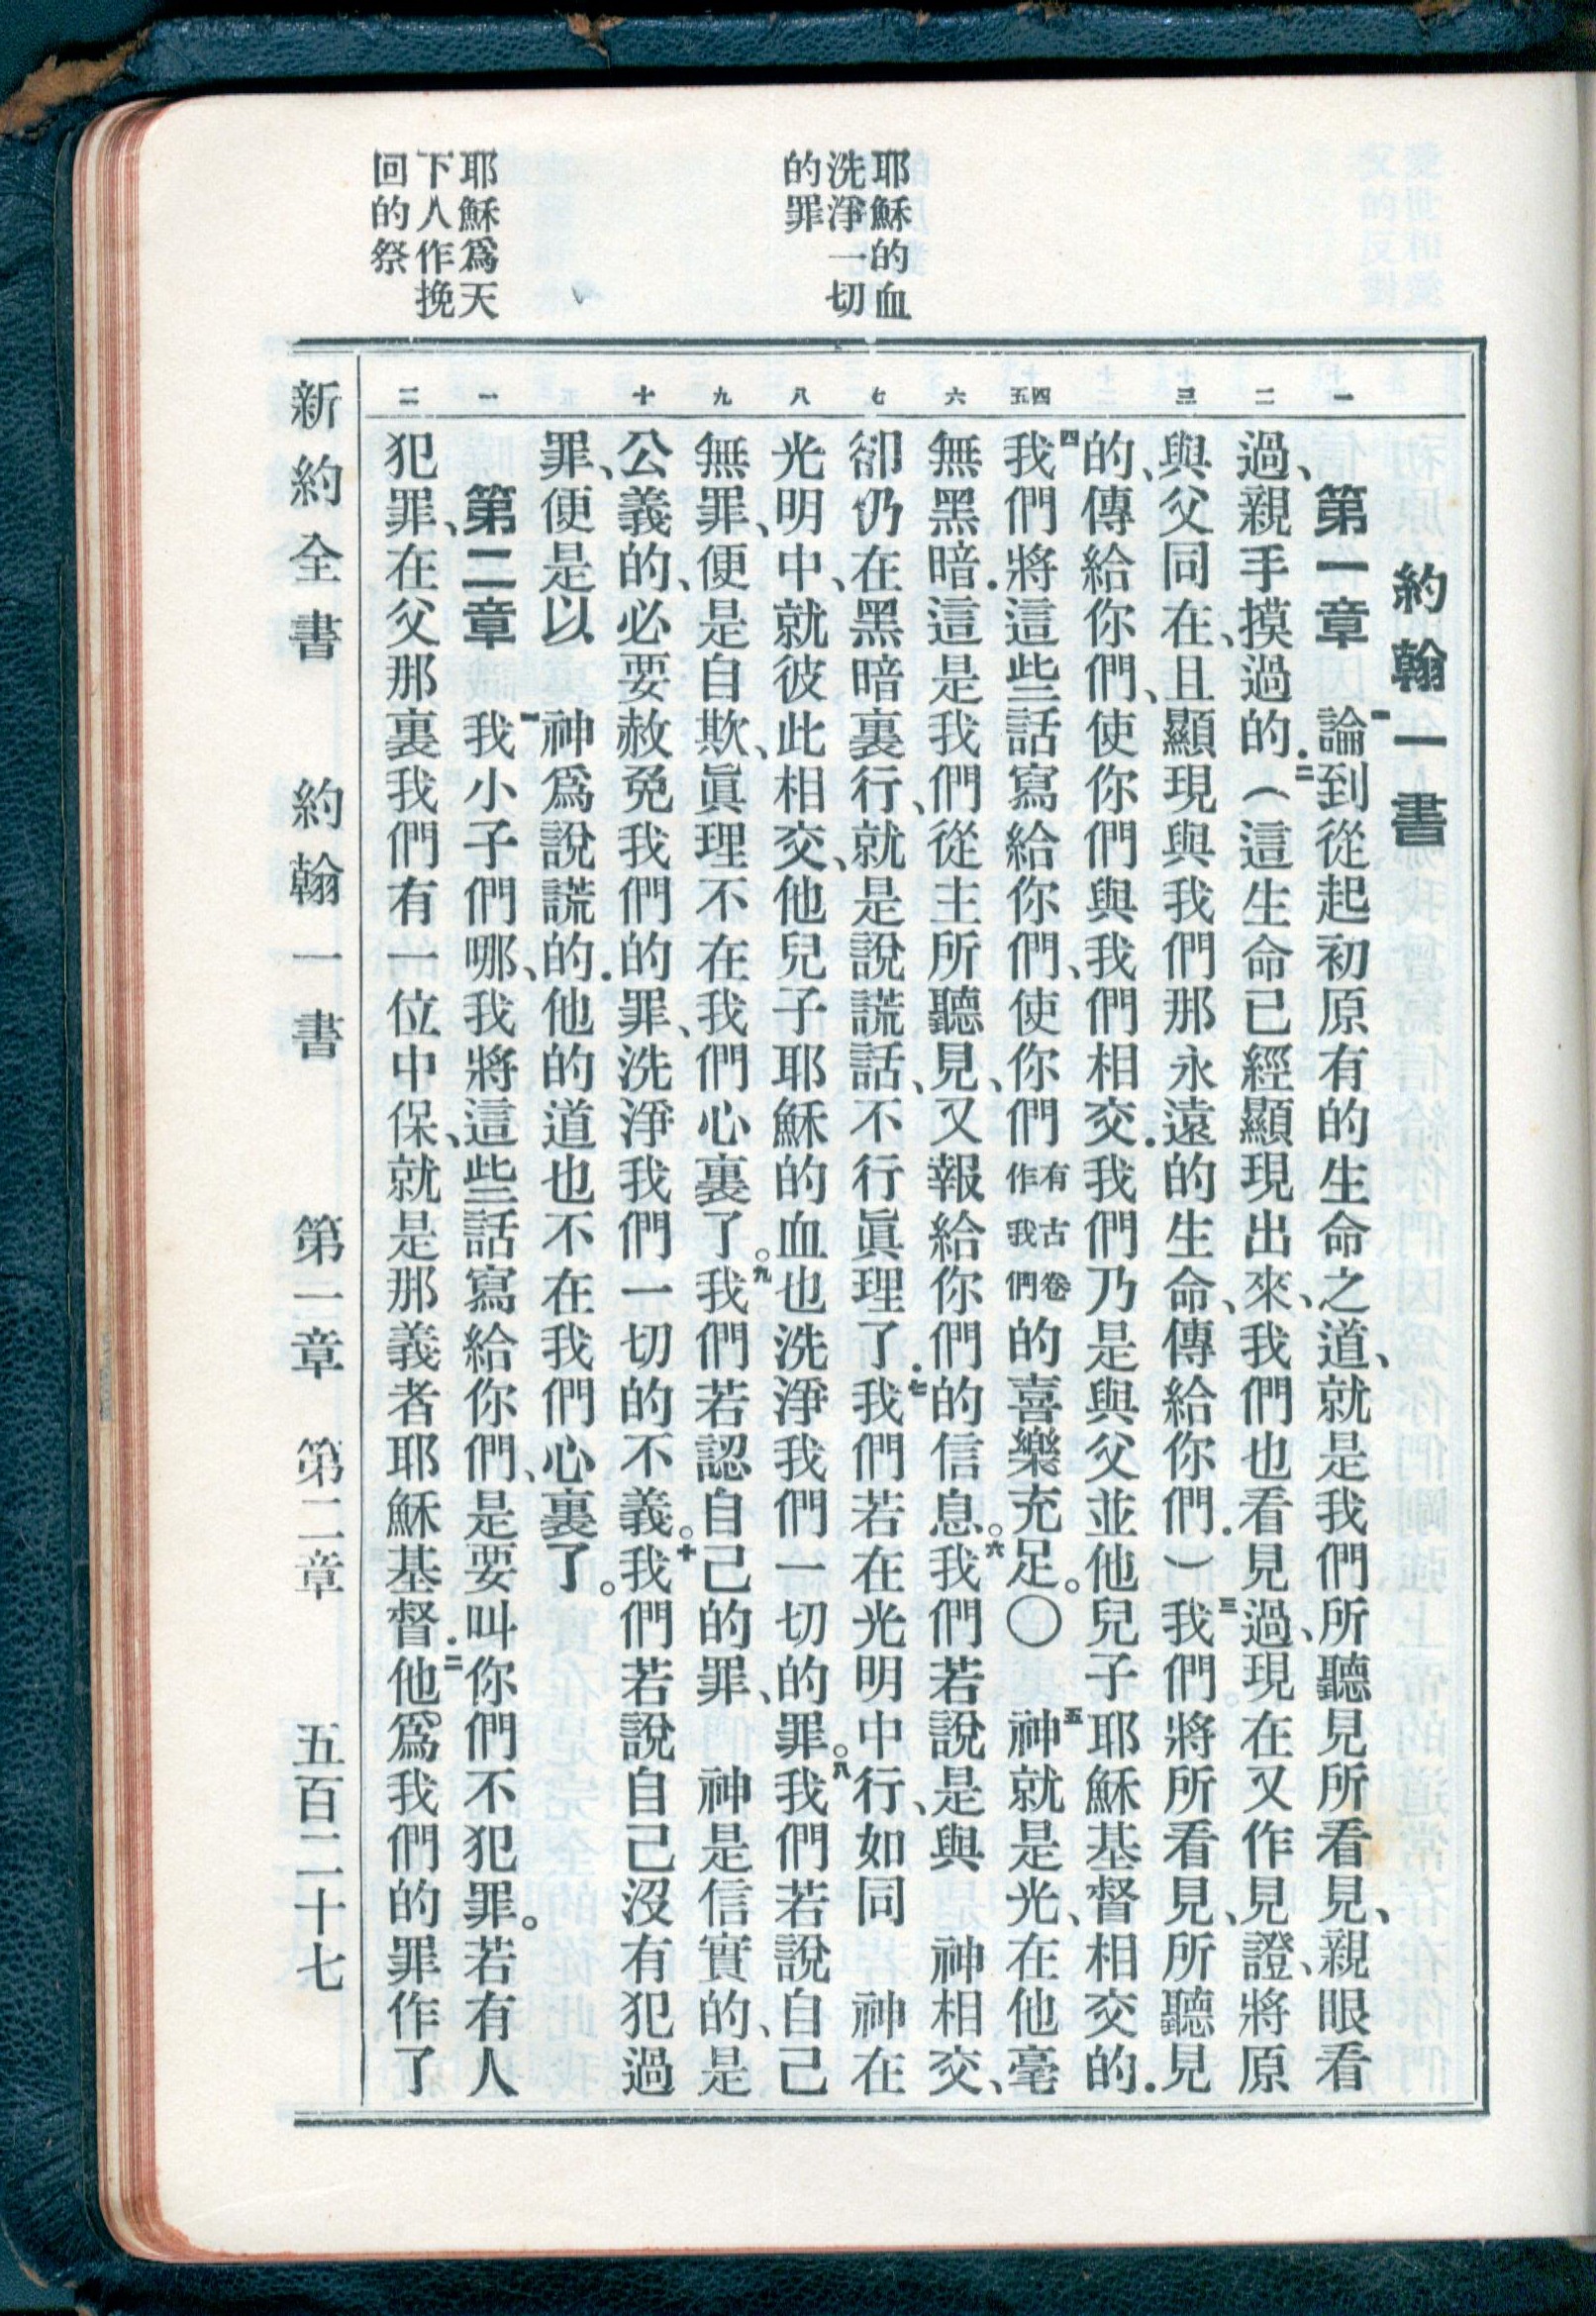 耶穌的血
洗淨一切
的罪
耶穌爲天
下人作挽
回的祭
一
二
三
四五
六
七
八
九
十
一
二
約翰一書
第一章 一論到從起初原有的生命之道、就是我們所聽見所看見、親眼看
過、親手摸過的．二（這生命已經顯現出來、我們也看見過、現在又作見證、將原
與父同在、且顯現與我們那永遠的生命、傳給你們．）三我們將所看見、所聽見
的、傳給你們、使你們與我們相交．我們乃是與父並他兒子耶穌基督相交的．
四我們將這些話寫給你們、使你們有古卷作我們的喜樂充足。〇五神就是光、在他毫
無黑暗．這是我們從主所聽見、又報給你們的信息。六我們若說是與 神相交、
卻仍在黑暗裏行、就是說謊話、不行眞理了．七我們若在光明中行、如同 神在
光明中、就彼此相交、他兒子耶穌的血也洗淨我們一切的罪。八我們若說自己
無罪、便是自欺、眞理不在我們心裏了。九我們若認自己的罪、 神是信實的、是
公義的、必要赦免我們的罪、洗淨我們一切的不義。十我們若說自己沒有犯過
罪、便是以 神爲說謊的．他的道也不在我們心裏了。
第二章 一我小子們哪、我將這些話寫給你們、是要叫你們不犯罪。若有人
犯罪、在父那裏我們有一位中保、就是那義者耶穌基督．二他爲我們的罪作了
新約全書 約翰一書 第一章 第二章 五百二十七